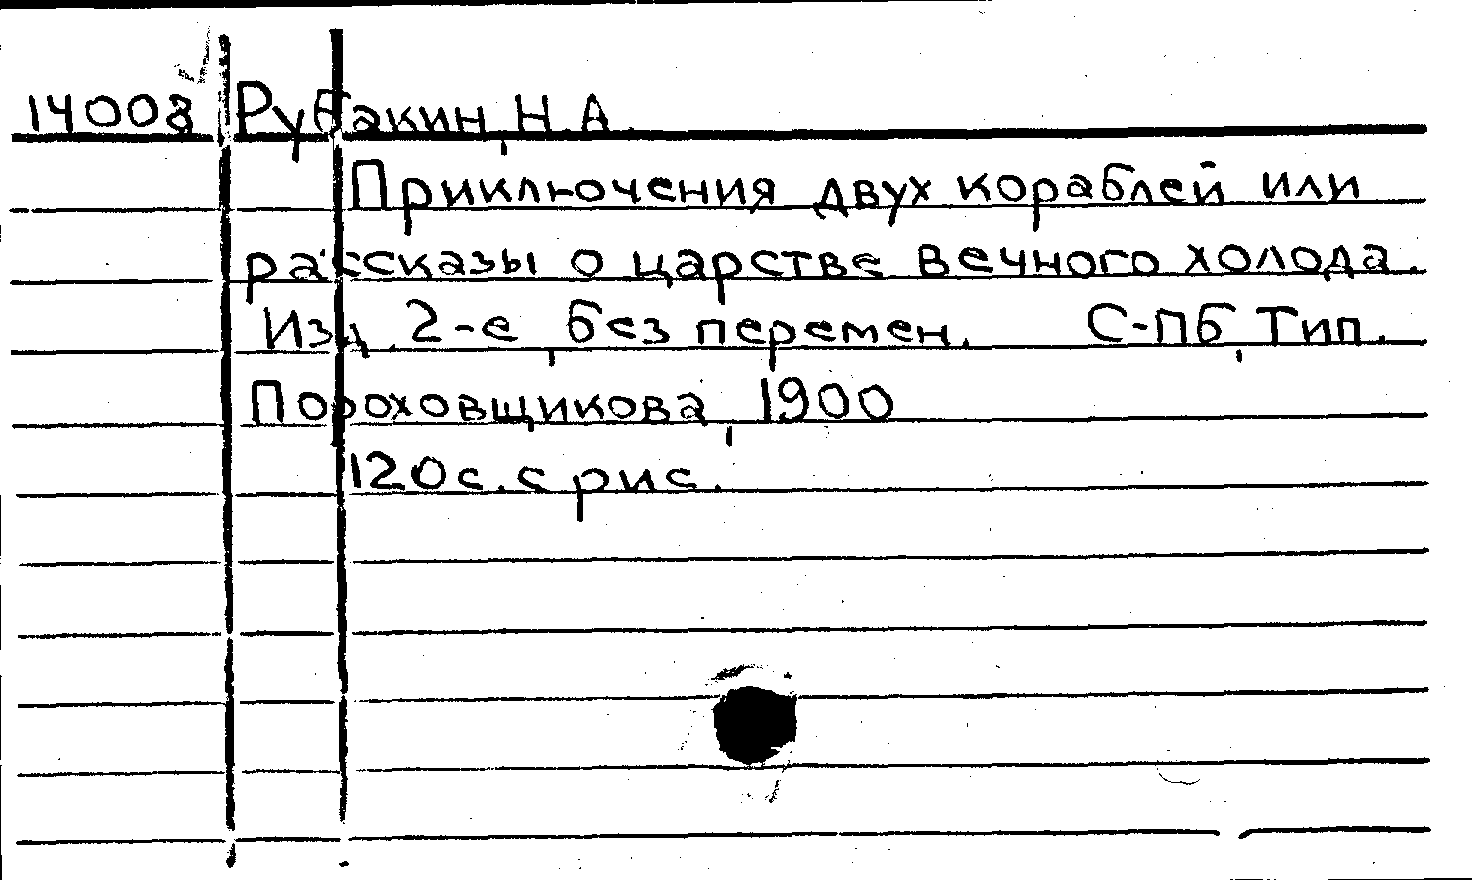 14008 Рубакин, Н.А.
Приключения двух кораблей или
рассказы о царстве вечного холода.
Изд. 2-е, без перемен. С-Пб, Тип.
Пороховщикова, 1900
120с. с рис.